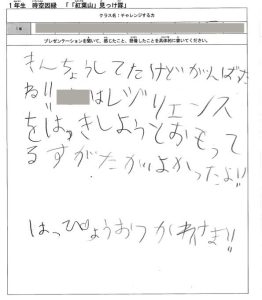 1年生 時空因縁 「「紅葉山」見っけ隊」
クラス名:チャレンジする力
プレゼンテーションを聞いて、感じたこと、想像したことを具体的に書いてください。
きんちょうしてたけどがんばた
ね!! はレジリエンス
をはっきしようとおもって
るすがたがよかったよ!!
はっぴょうおつかれさま!!